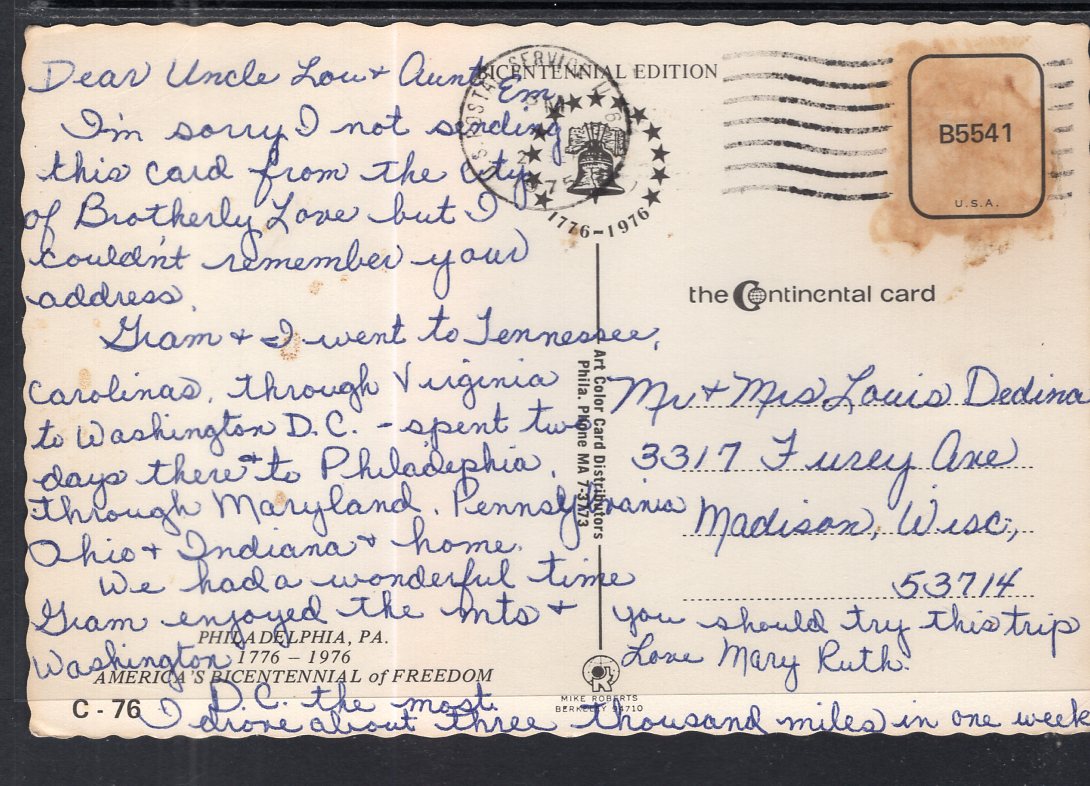 Dear Uncle Lou + Aunt Em
I'm sorry I not sending
this card from the city
of Brotherly Love but I
couldn't remember your
address.
Gram + I went to Tennessee,
Carolinas, through Virginia
to Washington D.C. - spent two
days there + to Philadephia,
through Maryland, Pennsylvania
Ohio + Indiana + home.
We had a wonderful time
Gram enjoyed the mts +
Washington
D.C. the most.
I drove about three thousand miles in one week
you should try this trip
Love Mary Ruth.
PHILADELPHIA, PA.
1776 – 1976
AMERICA'S BICENTENNIAL of FREEDOM
C - 76
BICENTENNIAL EDITION
POSTAL SERVICE U.S.
PM
1776-1976
B5541
U.S.A.
the Continental card
Art Color Card Distributors
Phila. Phone MA 7-3773
Mr + Mrs Louis Dedina
3317 Furey Ave
Madison, Wisc.,
53714
MIKE ROBERTS
BERKELEY 94710